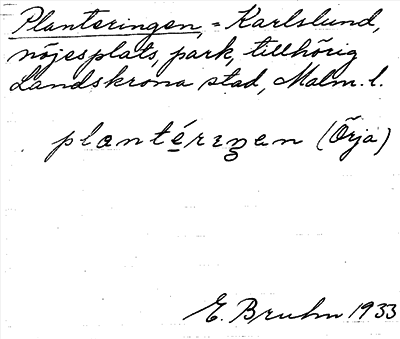 Planteringen, = Karlslund,
nöjesplats, park, tillhörig
Landskrona stad, Malm. l.
plantérıŋen (Örja)
E. Bruhn 1933